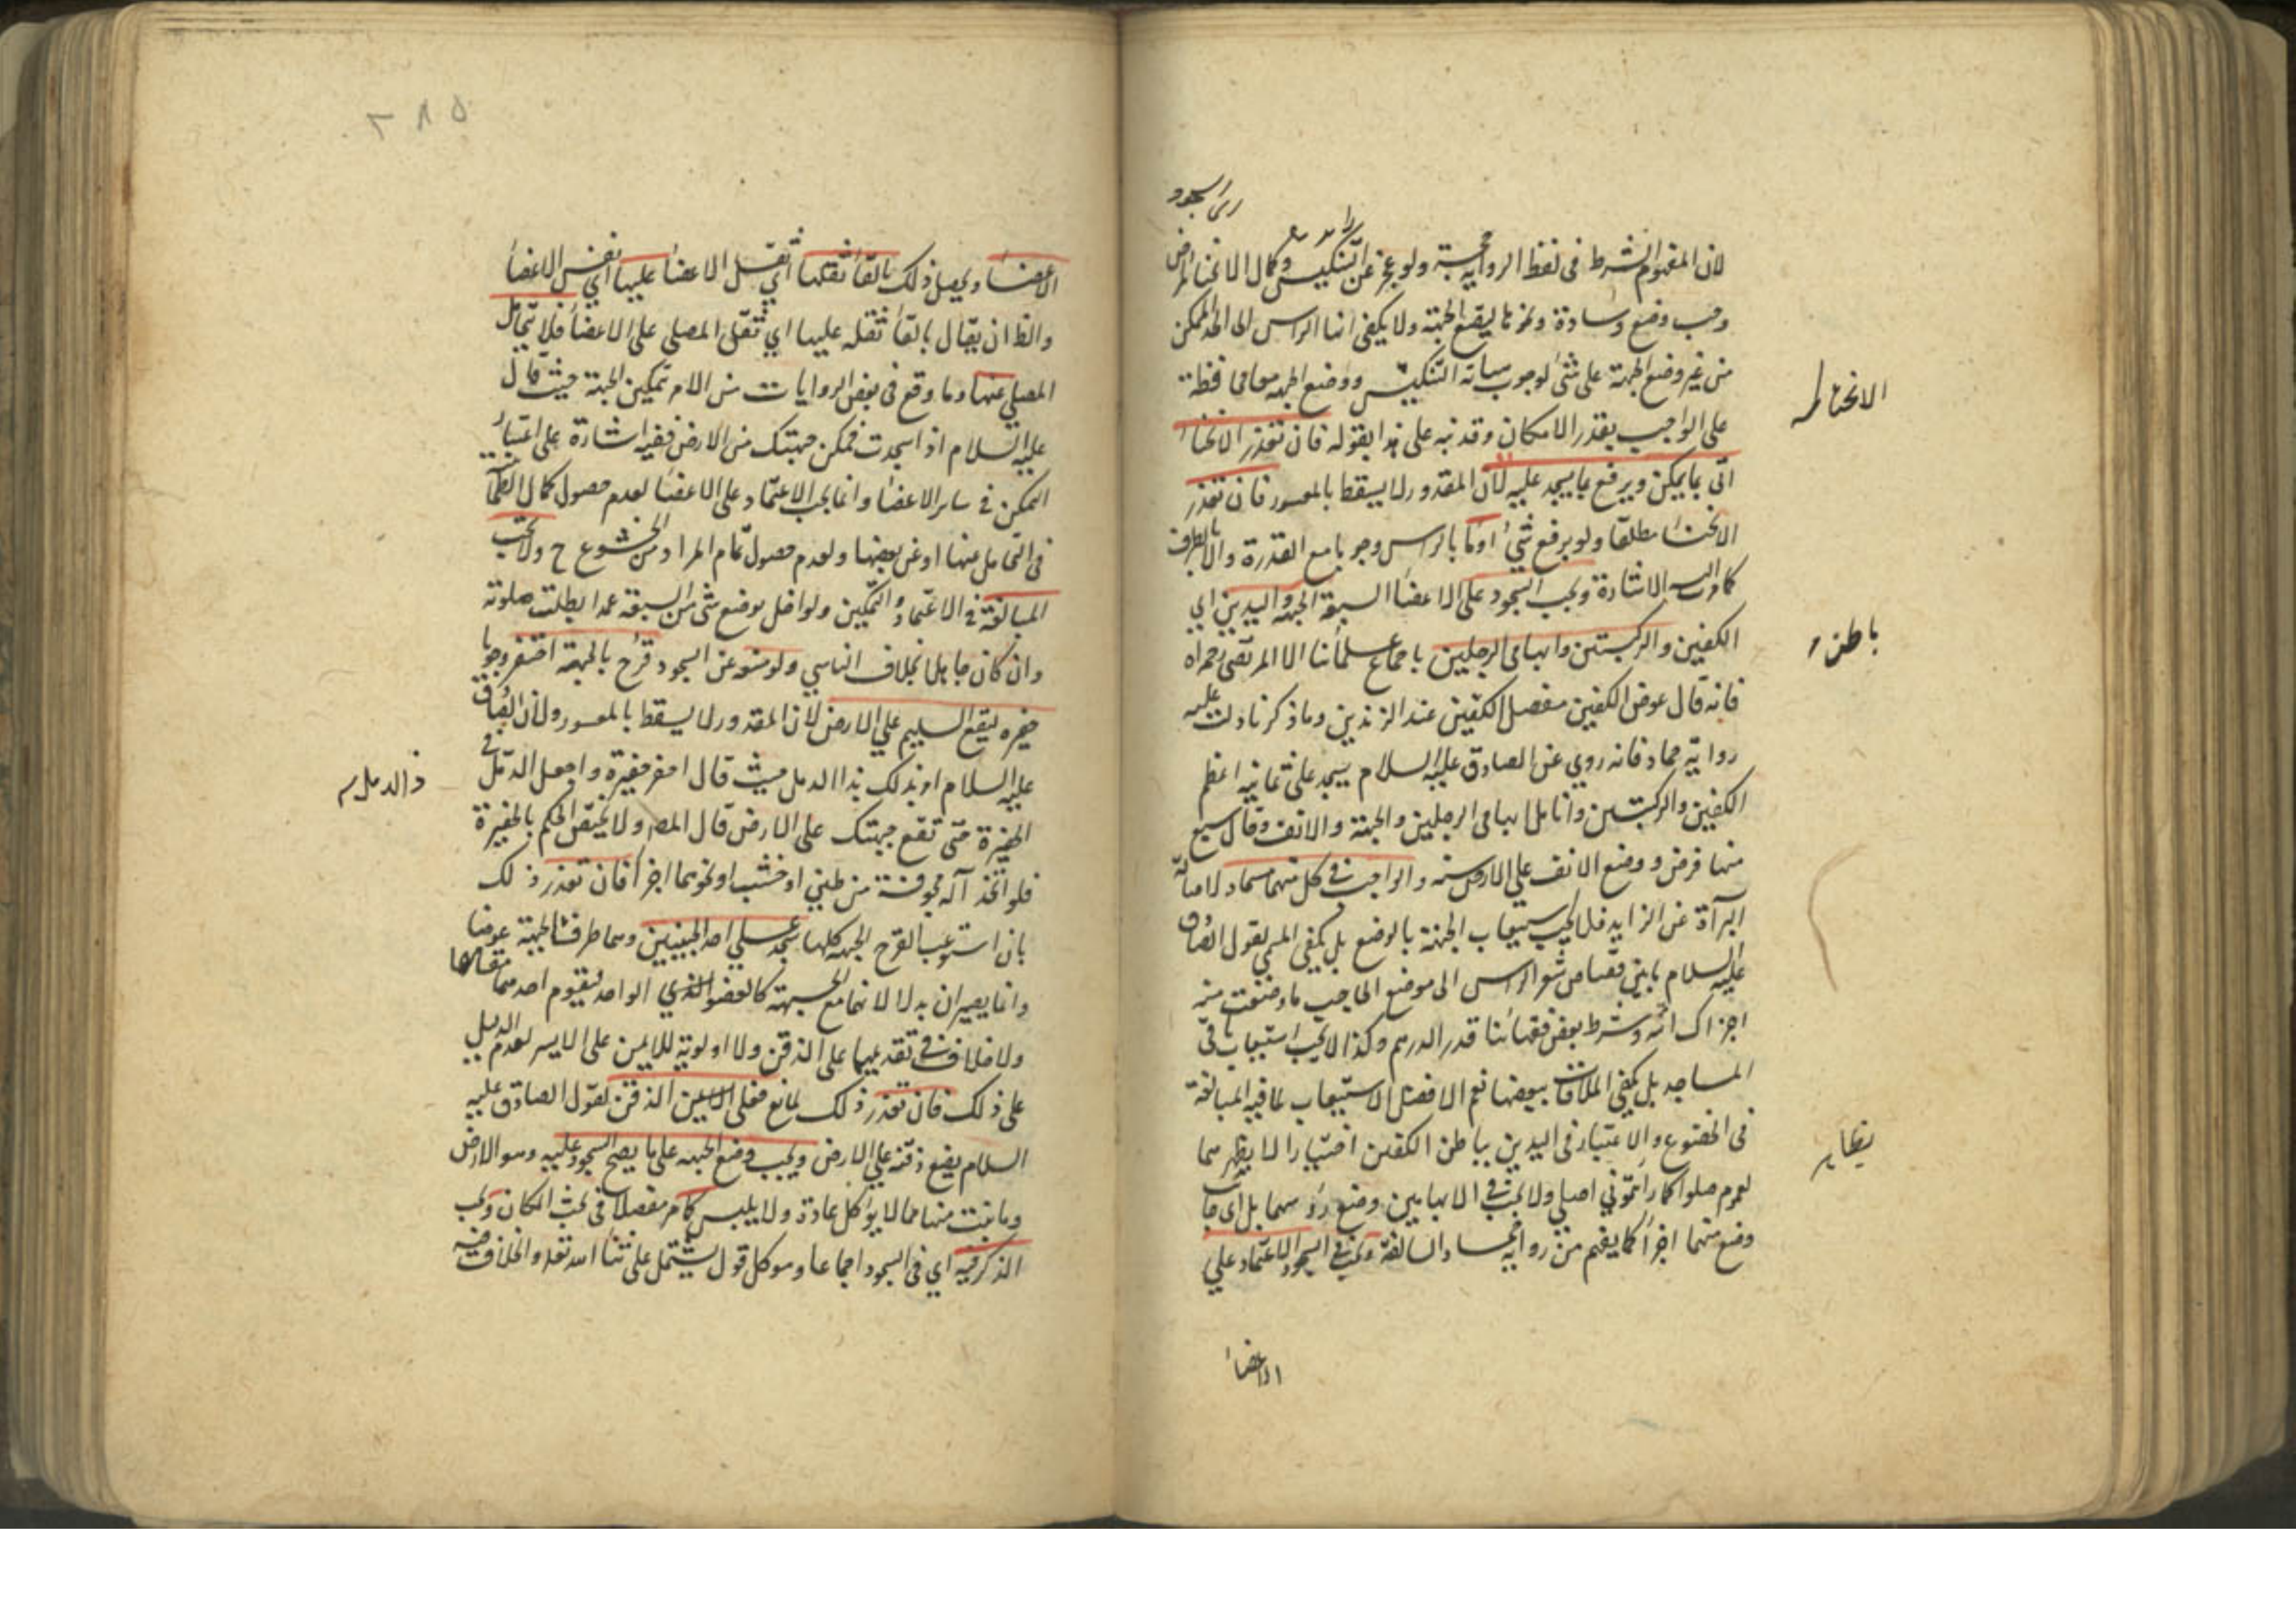 لان المفهوم الشرط فى لفظ الرواية حجة ولو عجز عن التنكيس وكمال الانخفاض
وجب وضع وسادة ونحوها ليقع الجبهة ولا يكفى انها الراس الى الحد الممكن
من غير وضع الجبهة على شئ لوجوب التنكيس ووضع الجبهة محافظة
على الواجب بقدر الامكان وقد نبه على هذا بقوله فان تعذر الانحنا
اتى بما يمكن ويرفع ما يسجد عليه لان المقدور لا يسقط بالمعسور فان تعذر
الانحنا مطلقا ولو برفع شئ اومأ بالراس وجوبا مع القدرة والا بالطرف
كما مرت اليه الاشارة ويجب السجود على الاعضا السبعة الجبهة واليدين اي
الكفين والركبتين وابهامى الرجلين باجماع علمائنا الا المرتضى رحمه الله
فانه قال عوض الكفين مفصل الكفين عند الزندين وما ذكرنا دلت عليه
رواية حماد فانه روي عن الصادق عليه السلام يسجد على ثمانية اعظم
الكفين والركبتين وانامل ابهامى الرجلين والجبهة والانف وقال سبع
منها فرض ووضع الانف على الارض سنة والواجب في كل منهما مسماه لاصالة
البرآءة عن الزايد فلا يجب استيعاب الجبهة بالوضع بل يكفى المس لقول الصادق
عليه السلام ما بين قصاص شعر الراس الى موضع الحاجب ما وضعت منه
اجزاك وشرط بعض فقهائنا قدر الدرهم وكذا لا يجب استيعاب باقى
المساجد بل يكفى الملاقات ببعضها نعم الافضل الاستيعاب لما فيه المبالغة
فى الخضوع والاعتبار فى اليدين بباطن الكفين اختيارا لا بظهرهما
لعموم صلوا كما رأيتمونى اصلى ولا يجب في الابهامين وضع رؤسهما بل اى جانب
وضع منهما اجزأ كما يفهم من رواية حماد السالفة ويجب في السجود الاعتماد علي
الاعضا
الانحنا
باطن
بظاهر
٢٨٥
الاعضا ويحصل ذلك بالقا ثقلها اي ثقل الاعضا عليها اي نفس الاعضا
والظ ان يقال بالقا ثقله عليها اي ثقل المصلى على الاعضا فلا يتحامل
المصلى عنها وما وقع فى بعض الروايات من الامر بتمكين الجبهة حيث قال
عليه السلام اذا سجدت فمكن جبهتك من الارض ففيه اشارة على اعتبار
التمكن في ساير الاعضا وانما يجب الاعتماد على الاعضا لعدم حصول كمال الطمأ
فى التحامل عنها او عن بعضها ولعدم حصول تمام المراد من الخشوع ح ولا يجب
المبالغة في الاعتماد والتمكين ولو اخل بوضع شئ من السبعة عمدا بطلت صلوته
وان كان جاهلا بخلاف الناسي ولو منعه عن السجود قرح بالجبهة احتفر وجوبا
حفيرة ليقع السليم علي الارض لان المقدور لا يسقط بالمعسور ولان الصادق
عليه السلام امر بذلك ذا الدمل حيث قال احفر حفيرة واجعل الدمل في
الحفيرة حتى تقع جبهتك على الارض قال المصر ولا يختص الحكم بالحفيرة
فلو اتخذ آلة مجوفة من طين او خشب او نحوهما اجزأ فان تعذر ذلك
بان استوعب القرح الجبهة كلها سجد علي احد الجبينين وهما طرفا الجبهة عوضا
وانما يصيران بدلا لانهما مع الجبهة كالعضو الواحد فيقوم احدهما مقامها
ولا خلاف في تقديمهما على الذقن ولا اولوية للايمن على الايسر لعدم الدليل
على ذلك فان تعذر ذلك لمانع فعلى الذقن لقول الصادق عليه
السلام يضع ذقنه علي الارض ويجب وضع الجبهة على ما يصح السجود عليه وهو الارض
وما نبت منها مما لا يؤكل عادة ولا يلبس كما مر مفصلا فى بحث المكان ويجب
الذكر فيه اي فى السجود اجماعا وهو كل قول يشتمل على ثنا الله تعه والخلاف فيه
ذالدمل